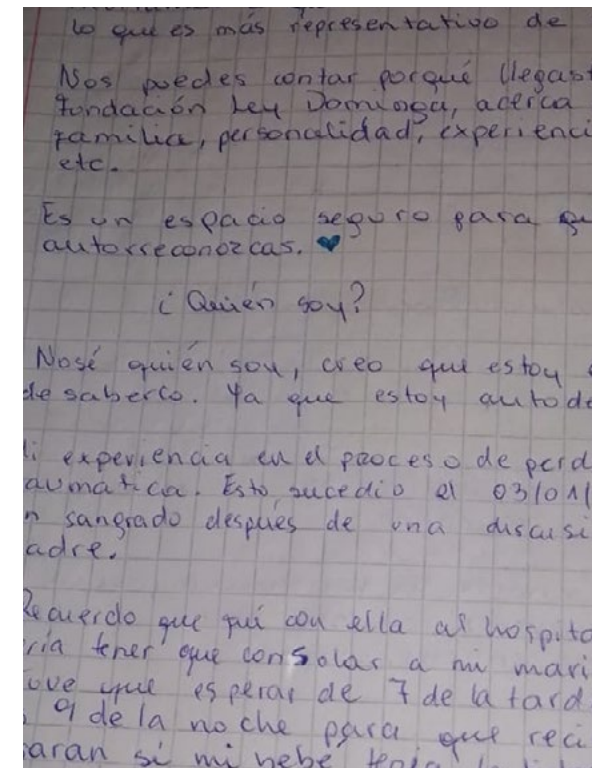 lo que es más representativo de
Nos puedes contar porqué llegast
fundación Ley Dominga, acerca
familia, personalidad, experienci
etc.
Es un espacio seguro para
autorreconozcas.
¿Quién soy?
Nosé quién soy, creo que estoy
de saberlo. Ya que estoy autode
i experiencia en el proceso de perd
aumatica. Esto sucedio el 03/01/
n sangrado después de una discusi
adre.
Recuerdo que fui con ella al hospita
ría tener que consolar a mi mari
tuve que esperar de 7 de la tard
9 de la noche para que reci
aran si mi bebe tenía